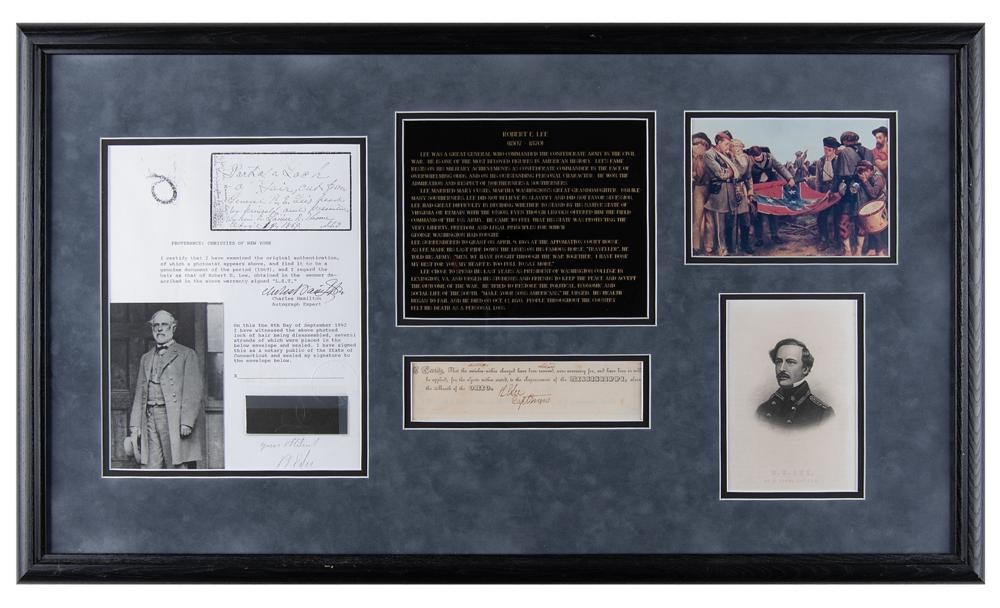 a Hair cut from
PROVENANCE: CHRISTIES OF NEW YORK
I certify that I have examined the original authentication,
of which a photostat appears above, and find it to be a
genuine document of the period (1869), and I regard the
hair as that of Robert E. Lee, obtained in the manner de-
scribed in the above warranty signed "L.E.T."
Charles Hamilton
Autograph Expert
On this the 8th Day of September 1992
I have witnessed the above photoed
lock of hair being disassembled, several
strands of which were placed in the
below envelope and sealed. I have signed
this as a notary public of the State of
Connecticut and sealed my signature to
the envelope below.
X
R E Lee
ROBERT E. LEE
(1807 - 1870)
LEE WAS A GREAT GENERAL WHO COMMANDED THE CONFEDERATE ARMY IN THE CIVIL
WAR. HE IS ONE OF THE MOST BELOVED FIGURES IN AMERICAN HISTORY. LEE'S FAME
RESTS ON HIS MILITARY ACHIEVEMENTS AS CONFEDERATE COMMANDER IN THE FACE OF
OVERWHELMING ODDS, AND ON HIS OUTSTANDING PERSONAL CHARACTER. HE WON THE
ADMIRATION AND RESPECT OF NORTHERNERS & SOUTHERNERS.
LEE MARRIED MARY CUSTIS, MARTHA WASHINGTON'S GREAT-GRANDDAUGHTER. UNLIKE
MANY SOUTHERNERS, LEE DID NOT BELIEVE IN SLAVERY AND DID NOT FAVOR SECESSION.
LEE HAD GREAT DIFFICULTY IN DECIDING WHETHER TO STAND BY HIS NATIVE STATE OF
VIRGINIA OR REMAIN WITH THE UNION, EVEN THOUGH LINCOLN OFFERED HIM THE FIELD
COMMAND OF THE U.S. ARMY. HE CAME TO FEEL THAT HIS STATE WAS PROTECTING THE
VERY LIBERTY, FREEDOM, AND LEGAL PRINCIPLES FOR WHICH
GEORGE WASHINGTON HAD FOUGHT.
LEE SURRENDERED TO GRANT ON APRIL 9, 1865, AT THE APPOMATTOX COURT HOUSE.
AS LEE MADE HIS LAST RIDE DOWN THE LINES ON HIS FAMOUS HORSE, "TRAVELLER", HE
TOLD HIS ARMY: "MEN, WE HAVE FOUGHT THROUGH THE WAR TOGETHER. I HAVE DONE
MY BEST FOR YOU; MY HEART IS TOO FULL TO SAY MORE."
LEE CHOSE TO SPEND HIS LAST YEARS AS PRESIDENT OF WASHINGTON COLLEGE IN
LEXINGTON, VA, AND URGED HIS STUDENTS AND FRIENDS TO KEEP THE PEACE AND ACCEPT
THE OUTCOME OF THE WAR. HE TRIED TO RESTORE THE POLITICAL, ECONOMIC AND
SOCIAL LIFE OF THE SOUTH. "MAKE YOUR SONS AMERICANS," HE URGED. HIS HEALTH
BEGAN TO FAIL AND HE DIED ON OCT. 12, 1870. PEOPLE THROUGHOUT THE COUNTRY
FELT HIS DEATH AS A PERSONAL LOSS.
I Certify, That the articles within charged have been received, were necessary for, and have been or will
be applied, for the objects within stated, to the improvement of the MISSISSIPPI, above
the Mouth of the OHIO.
R E Lee
Capt Engrs
R. E. LEE,